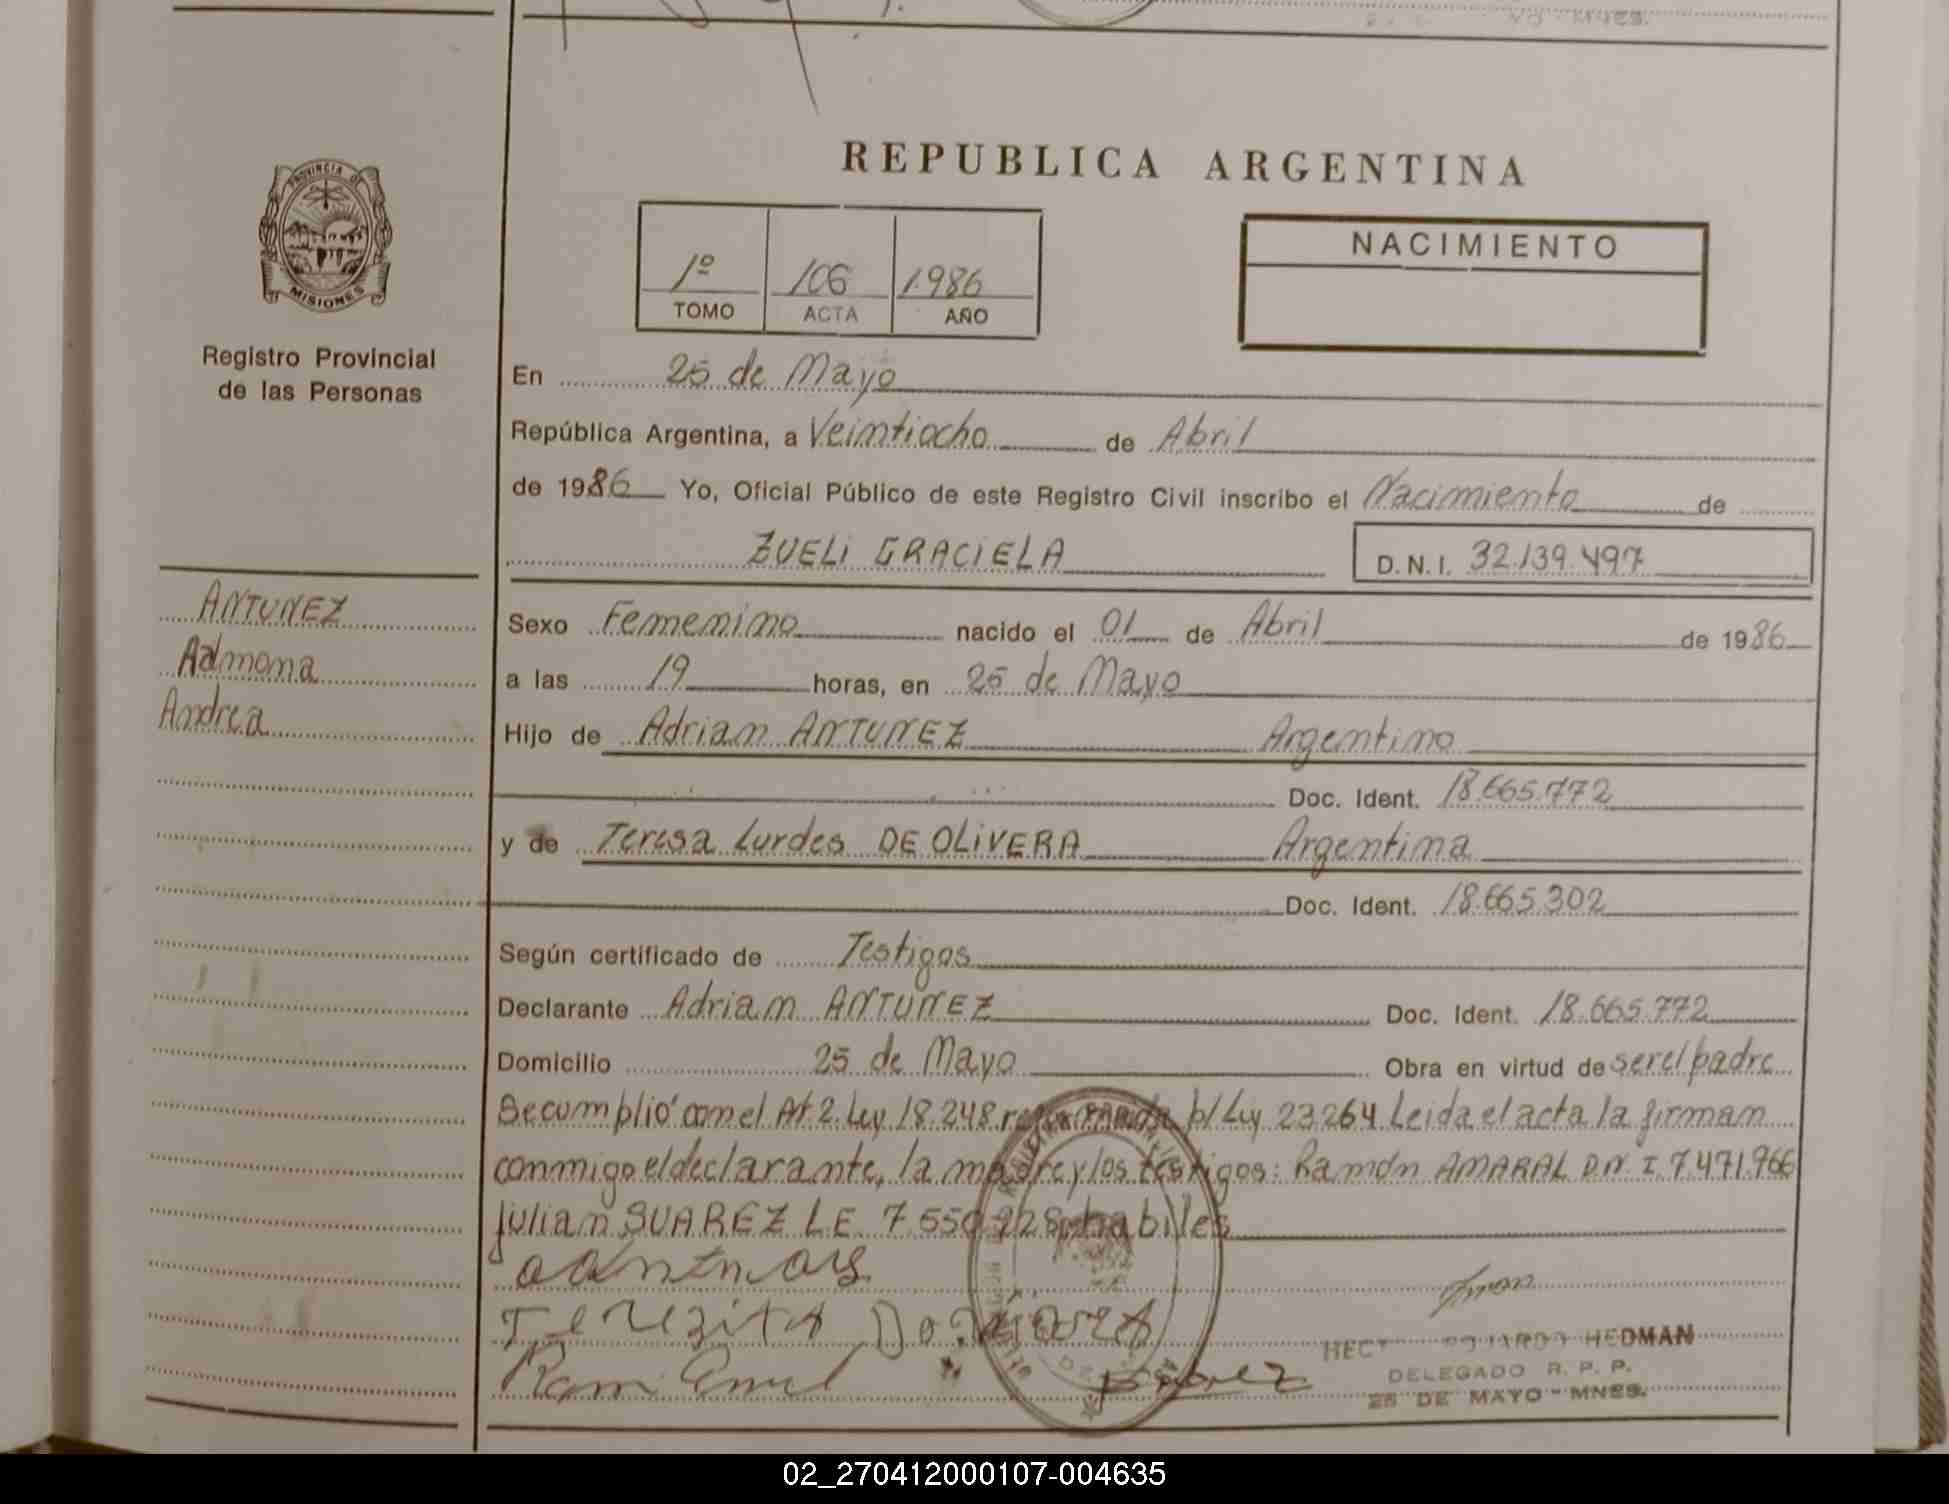 REPUBLICA ARGENTINA
PROVINCIA DE
MISIONES
Registro Provincial
de las Personas
1º 106 1.986
TOMO ACTA AÑO
NACIMIENTO
En 25 de Mayo
República Argentina, a Veintiocho de Abril
de 1986 Yo, Oficial Público de este Registro Civil inscribo el Nacimiento de
ZUELI GRACIELA D.N.I. 32.139.497
ANTUNEZ
Admona
Andrea
Sexo Femenino nacido el 01 de Abril de 1986
a las 19 horas, en 25 de Mayo
Hijo de Adrian ANTUNEZ Argentino
Doc. Ident. 18.665.772
y de Teresa Lurdes DE OLIVERA Argentina
Doc. Ident. 18.665.302
Según certificado de Testigos
Declarante Adrian ANTUNEZ Doc. Ident. 18.665.772
Domicilio 25 de Mayo Obra en virtud de ser el padre
Se cumplió con el At. 2. Ley 18.248 p/ Ley 23264 Leida el acta la firman
conmigo el declarante, la madre y los testigos: Ramón AMARAL D.N.I. 7.471.966
Julian SUAREZ L.E. 7.550.228 habiles
HEDMAN
DELEGADO R. P. P.
25 DE MAYO - MNES.
02_270412000107-004635